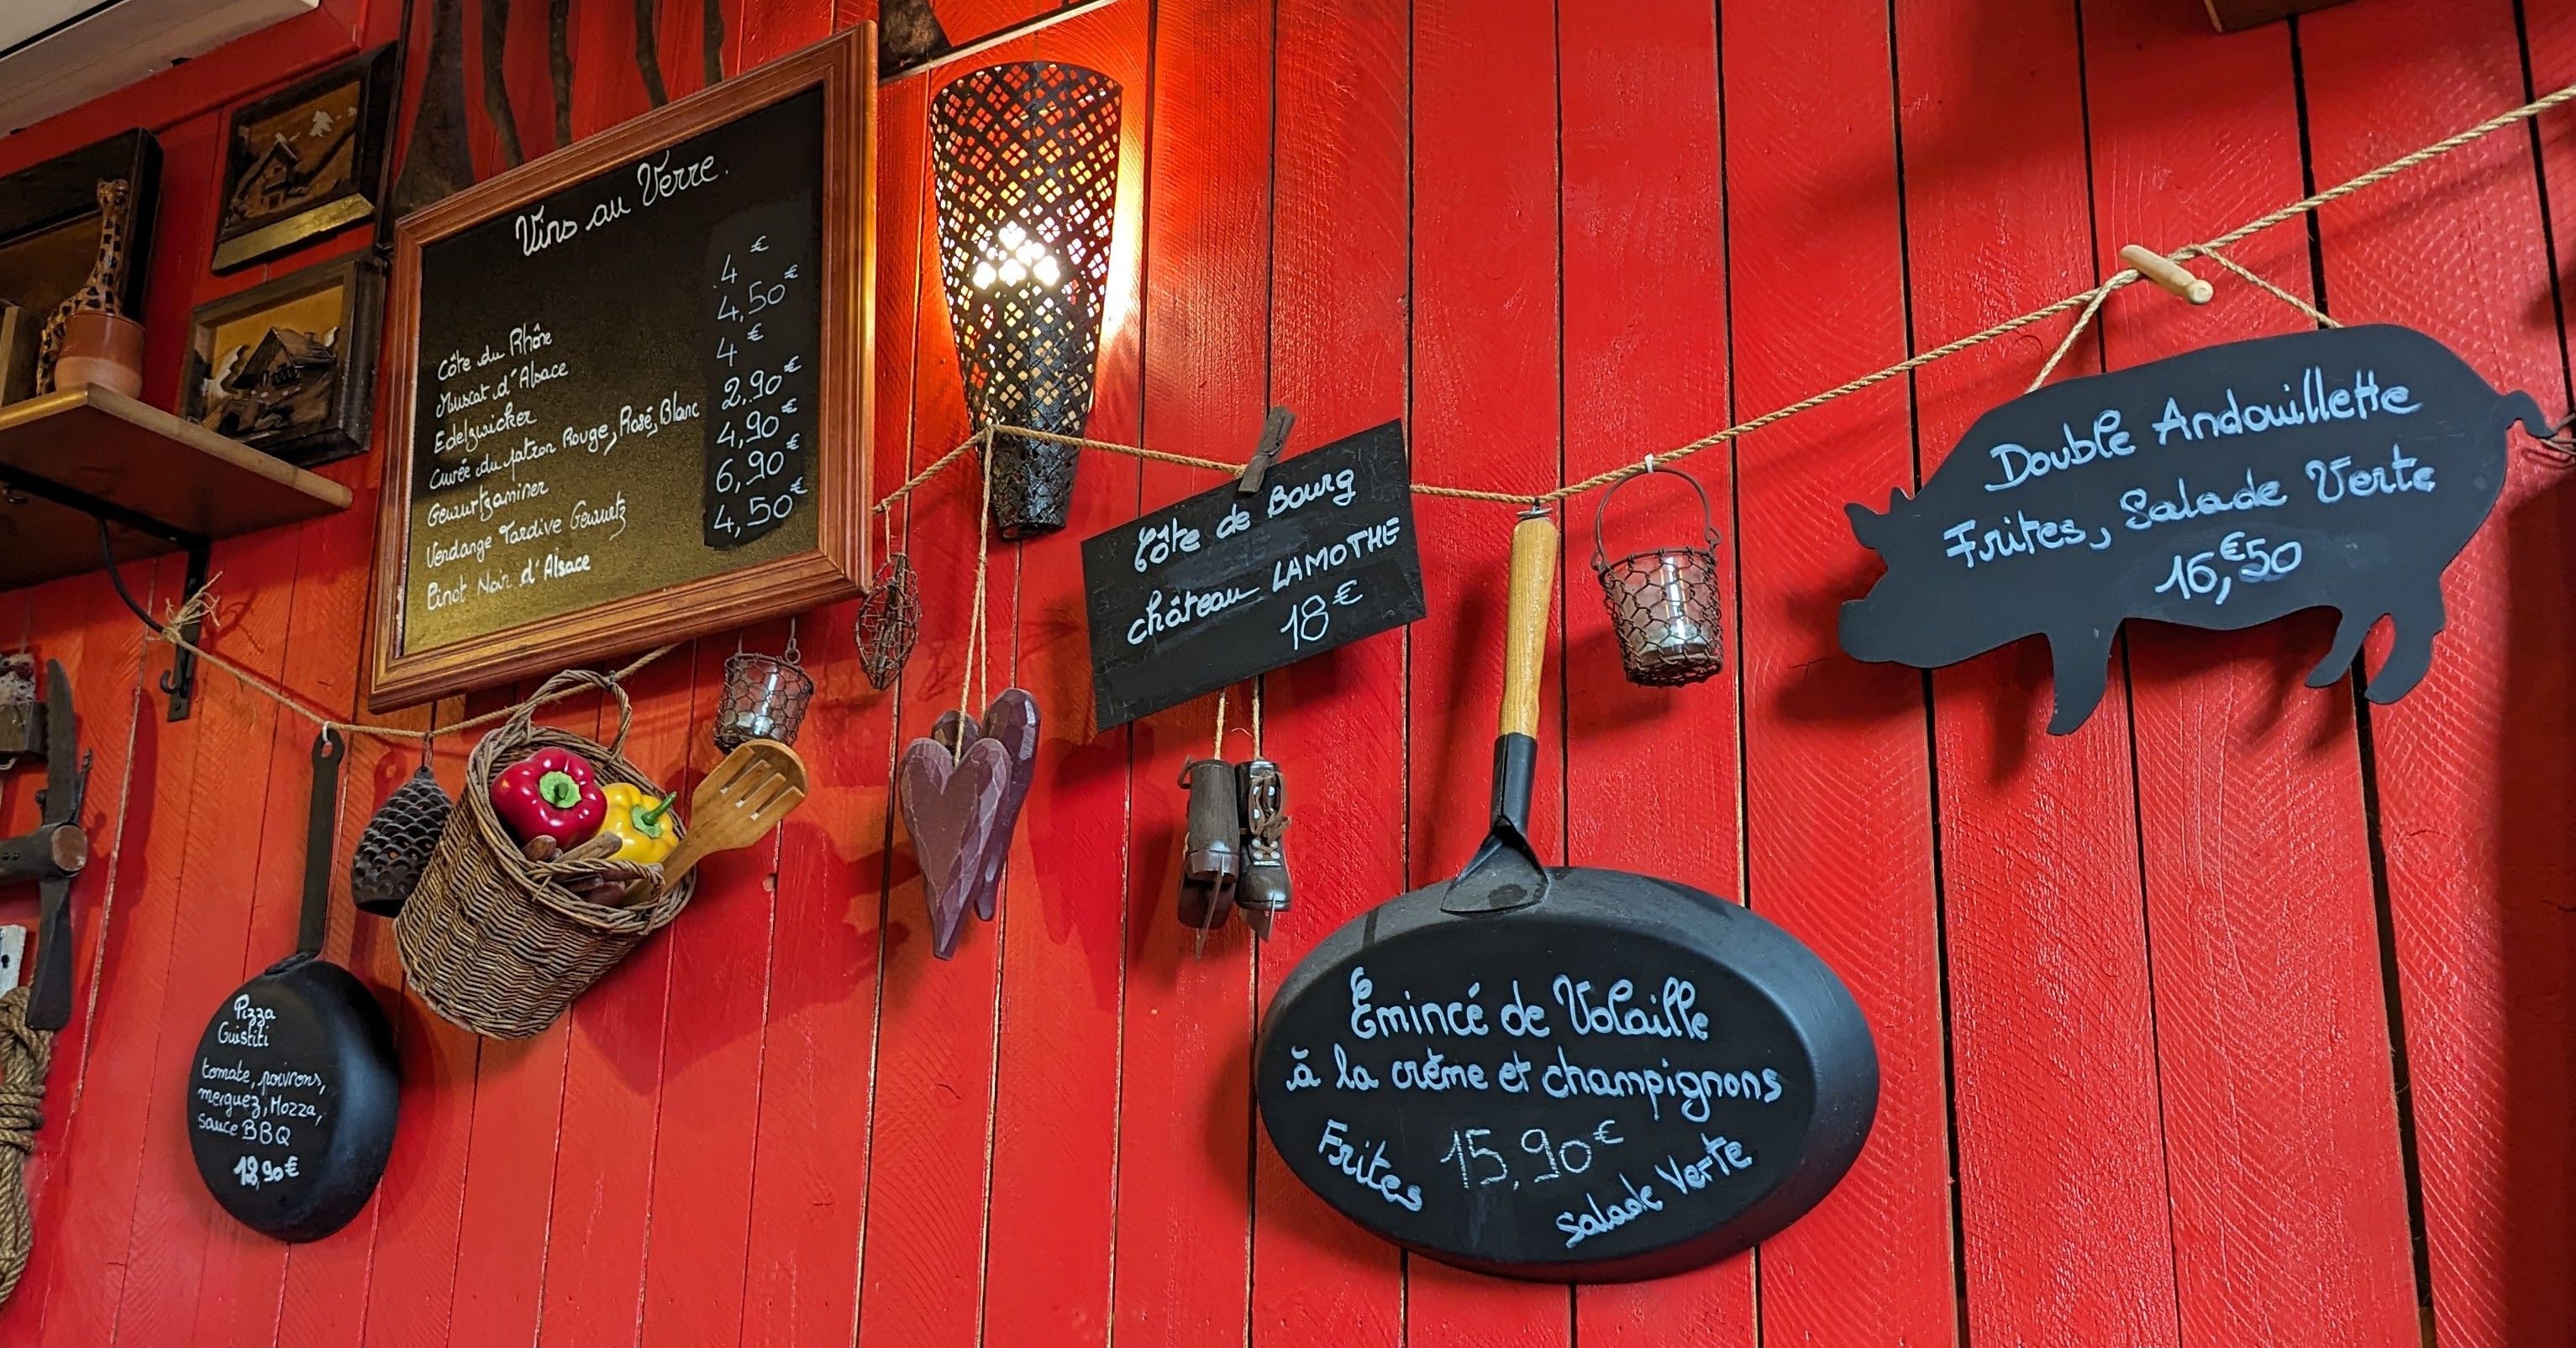 Vins au Verre.
Côte du Rhône 4€
Muscat d'Alsace 4,50€
Edelzwicker 4€
Cuvée du patron Rouge, Rosé, Blanc 2,90€
Gewurtzaminer 4,90€
Vendange Tardive Gewurtz 6,90€
Pinot Noir d'Alsace 4,50€
Pizza
Guistiti
tomate, poivrons,
merguez, Mozza,
sauce BBQ
12,90€
Côte de Bourg
château LAMOTHE
18€
Emincé de Volaille
à la crème et champignons
Frites 15,90€
Salade Verte
Double Andouillette
Frites, Salade Verte
16,€50